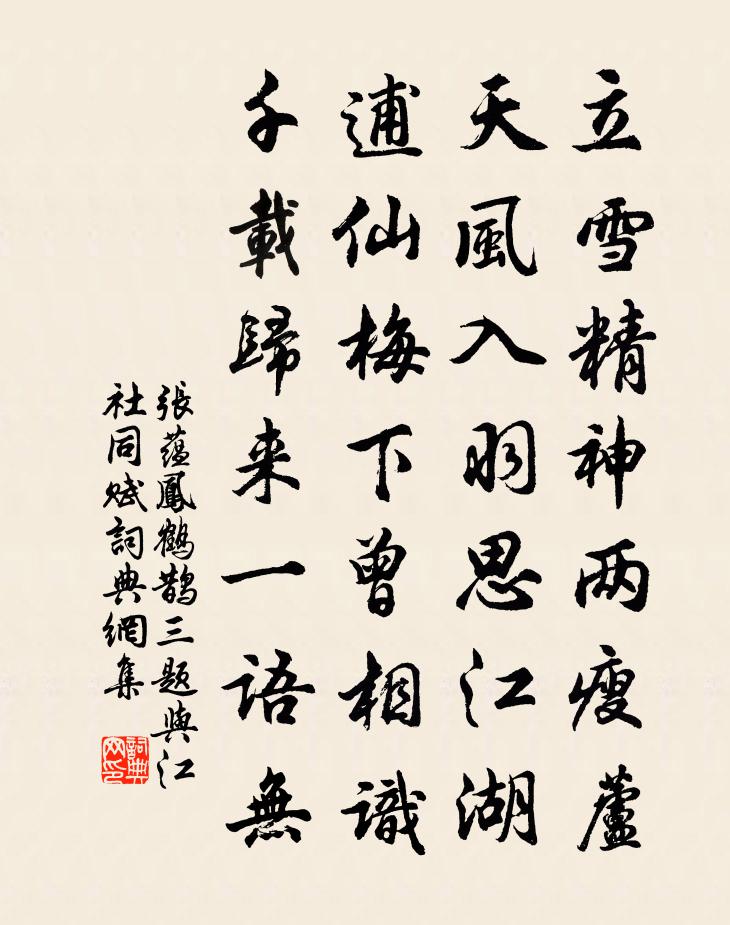 立雪精神两瘦蘆
天風入羽思江湖
逋仙梅下曾相識
千載歸来一語無
張藴鳳鶴鵲三題與江
社同赋詞典網集
詞典网印